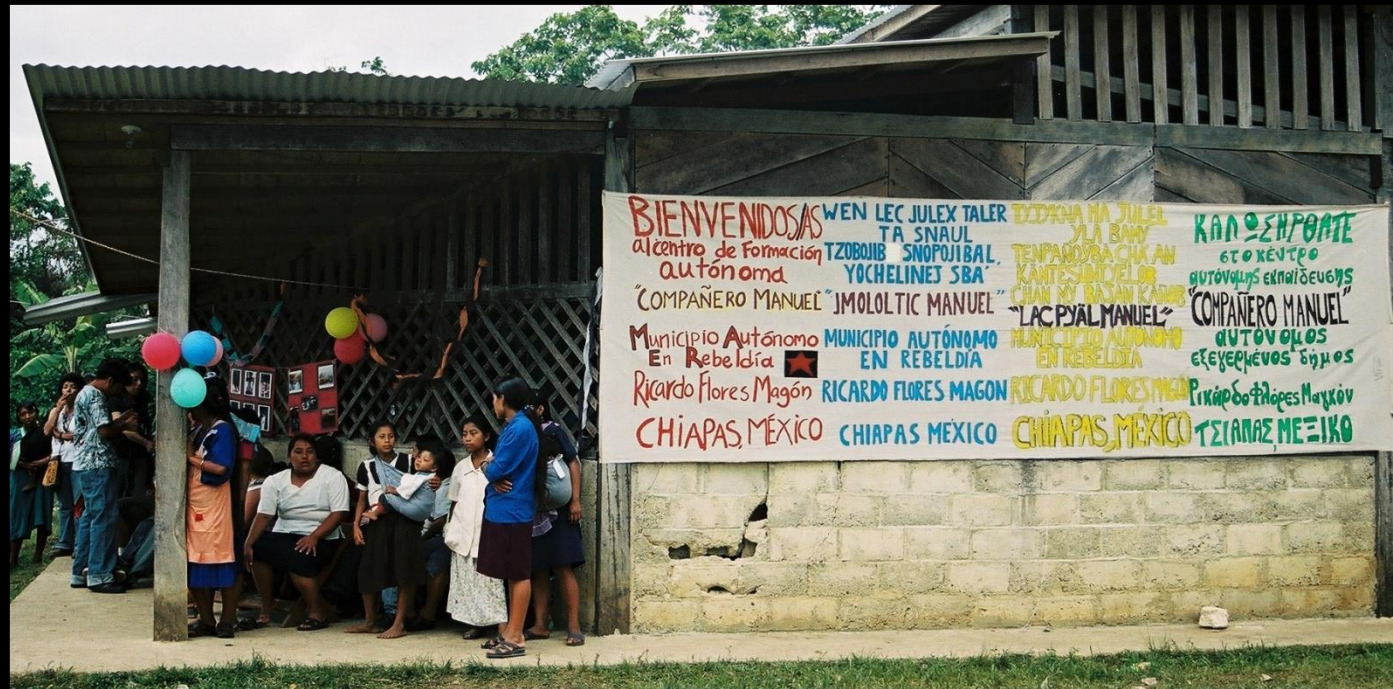 BIENVENIDOS/AS
al centro de Formación
autónoma
"COMPAÑERO MANUEL"
Municipio Autónomo
En Rebeldía
Ricardo Flores Magón
CHIAPAS, MÉXICO
WEN LEC JULEX TALER
TA SNAUL
TZOBOJIB SNOPOJIBAL,
YOCHELINEJ SBA'
"JMOLOLTIC MANUEL"
MUNICIPIO AUTÓNOMO
EN REBELDÍA
RICARDO FLORES MAGON
CHIAPAS MÉXICO
MA JULEL
"LAC PYÄL MANUEL"
MUNICIPIO AUTONOMO
EN REBELDÍA
RICARDO FLORES MAGON
CHIAPAS, MÉXICO
ΚΑΛΩΣΗΡΘΑΤΕ
στο κέντρο
αυτόνομης εκπαίδευσης
"COMPAÑERO MANUEL"
αυτόνομος
εξεγερμένος δήμος
Ρικάρδο Φλόρες Μαγκόν
ΤΣΙΑΠΑΣ, ΜΕΞΙΚΟ